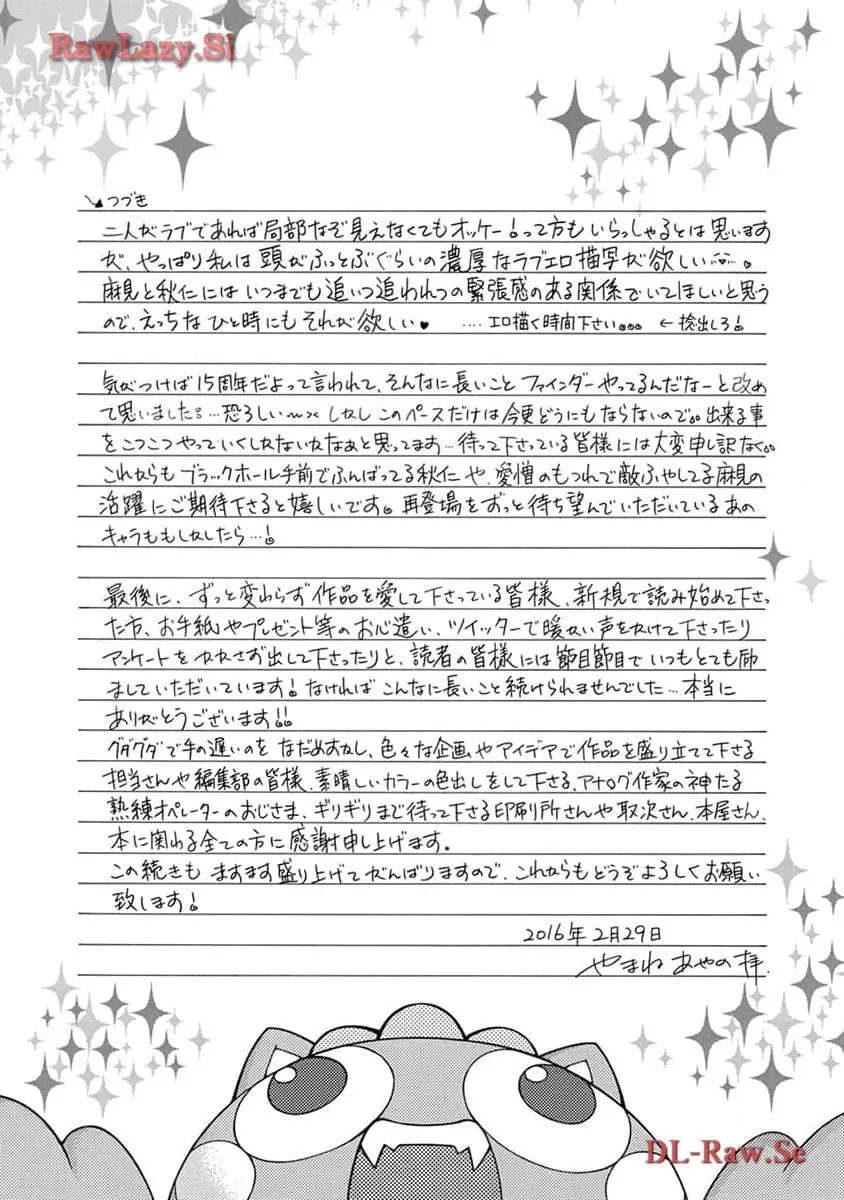 RawLazy.Si
つづき
二人がラブであれば局部なぞ見えなくてもオッケー!って方もいらっしゃるとは思います
が、やっぱり私は頭がふっとぶぐらいの濃厚なラブエロ描写が欲しい……♥
麻見と秋仁にはいつまでも追いつ追われつの緊張感のある関係でいてほしいと思う
ので、えっちなひと時にもそれが欲しい♥ ‥‥エロ描く時間下さい。。。 ←捻出しろ!
気がつけば15周年だよって言われて、そんなに長いことファインダーやってるんだなーと改め
て思いました。…恐ろしい しかしこのペースだけは今更どうにもならないので。。出来る事
をこつこつやっていくしかないかなぁと思ってます…待って下さっている皆様には大変申し訳なく。。
これからもブラックホール手前でふんばってる秋仁や、愛憎のもつれで敵ふやしてる麻見の
活躍にご期待下さると嬉しいです。再登場をずっと待ち望んでいただいているあの
キャラももしかしたら…!
最後に、ずっと変わらず作品を愛して下さっている皆様、新規で読み始めて下さっ
た方、お手紙やプレゼント等のお心遣い、ツイッターで暖かい声をかけて下さったり
アンケートをかかさず出して下さったりと、読者の皆様には節目節目でいつもとても励
ましていただいています!なければこんなに長いこと続けられませんでした…本当に
ありがとうございます!!
グダグダで手の遅いのをなだめすかし、色々な企画やアイデアで作品を盛り立てて下さる
担当さんや編集部の皆様、素晴しいカラーの色出しをして下さる、アナログ作家の神たる
熟練オペレーターのおじさま、ギリギリまで待って下さる印刷所さんや取次さん、本屋さん、
本に関わる全ての方に感謝申し上げます。
この続きもますます盛り上げてがんばりますので、これからもどうぞよろしくお願い
致します!
2016年2月29日
やまねあやの 拝
DL-Raw.Se